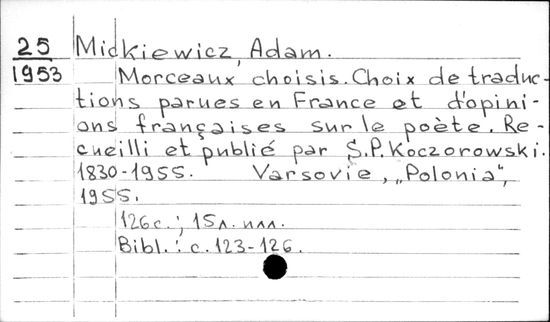 25 Mickiewicz, Adam.
1953 Morceaux choisis. Choix de traduc-
tions parues en France et d'opini-
ons françaises sur le poète. Re-
cueilli et publié par S.P. Koczorowski.
1830-1955. Varsovie, „Polonia",
1955.
126с.; 15л. илл.
Bibl.: с. 123-126.